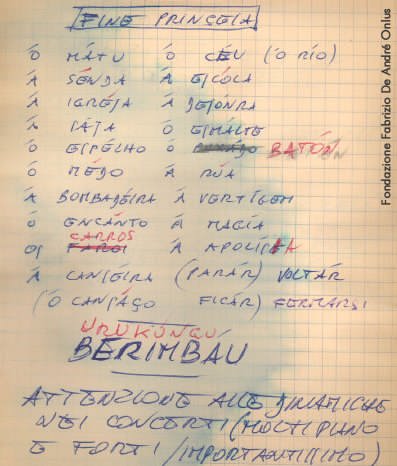 FINE PRINCESA
Ó MÁTU Ó CÉU (Ó RÍO)
Á SÉNDA Á ESCÓLA
Á IGRÉJA Á DESÓNRA
Á SÁJA Ó ESMÁLTE
Ó ESPÉLHO Ó BATÓN
Ó MÉDO Á RÚA
Á BOMBADÉIRA Á VERTÍGEM
Ó ENCÁNTO Á MAGÍA
CARROS
OS FAROI Á APOLÍSÍA
Á CANSÉIRA (PARÁR) VOLTÁR
(Ó CANSÁÇO FICÁR) FERMARSI
URUKÚNGU
BERIMBAU
ATTENZIONE ALLE DINAMICHE
NEI CONCERTI (MOLTI PIANO
E FORTI / IMPORTANTISSIMO)
Fondazione Fabrizio De André Onlus